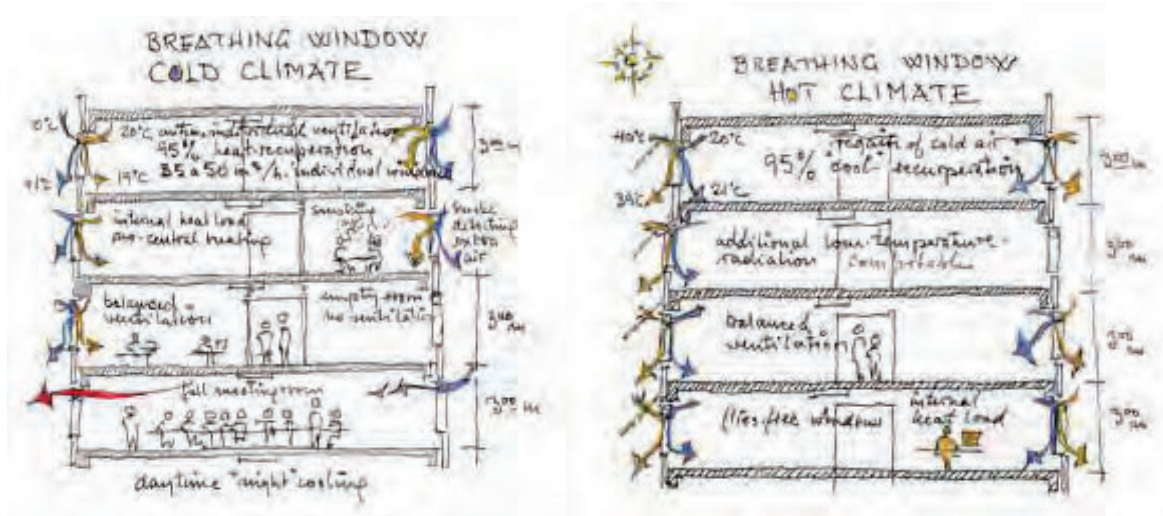 BREATHING WINDOW
COLD CLIMATE
0°C
20°C
individual ventilation
95% heat recuperation
35 à 50 m³/h. individual window
19°C
3.00 m
internal heat load
no central heating
smoking
smoke
detecting
extra
air
balanced
ventilation
empty room
no ventilation
3.00 m
full meeting room
3.00 m
daytime "night" cooling
BREATHING WINDOW
HOT CLIMATE
40°C
20°C
regain of cold air
95% "cool" recuperation
39°C
21°C
3.00 m
additional low-temperature-
radiation
3.00 m
balanced
ventilation
3.00 m
flies-free window
internal
heat load
3.00 m